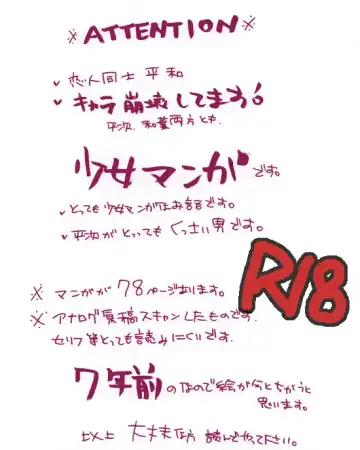 ※ ATTENTION ※
✓ 恋人同士 平和
✓ キャラ崩壊してます!
平次、和葉両方とも.
少女マンガです。
✓ とっても少女マンガなお話です。
✓ 平次がとってもくっさい男です。
R18
※ マンガが78ページあります。
※ アナログ原稿スキャンしたものです.
セリフ等とても読みにくいです.
7年前のなので絵が今とちがうと
思います。
以上 大丈夫な方 読んでやって下さい。